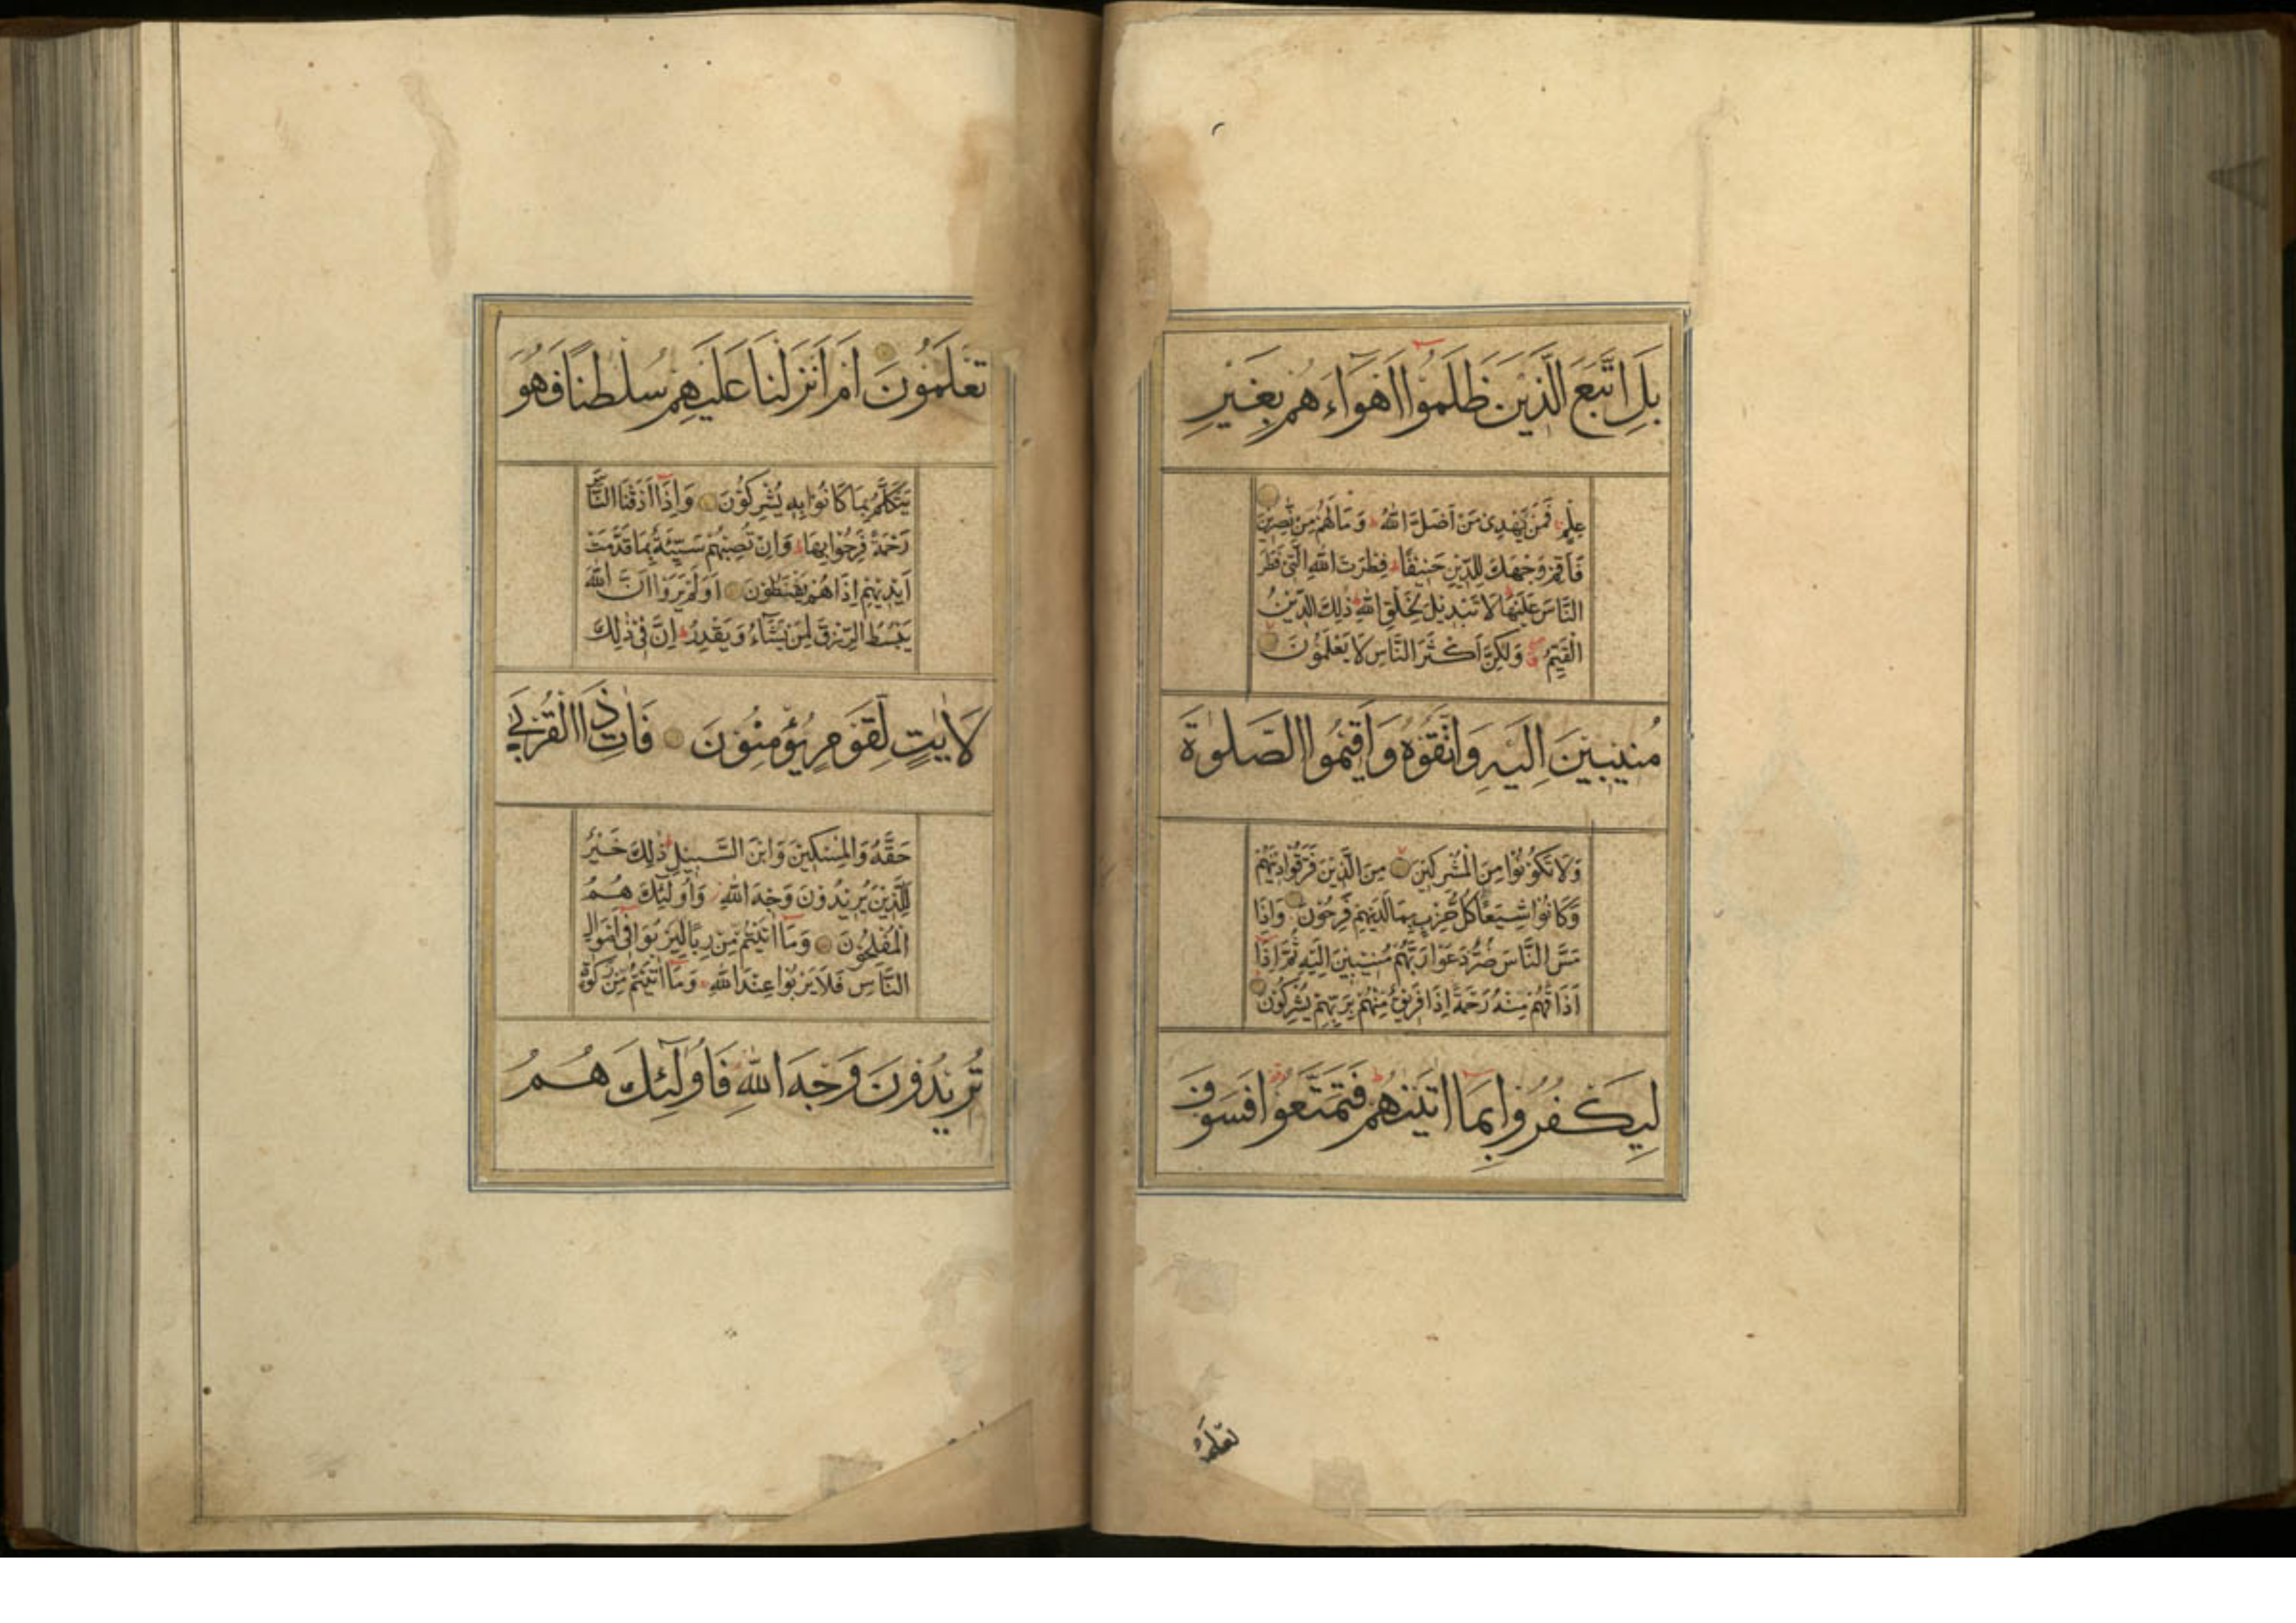 بَلِ اتَّبَعَ الَّذِيْنَ ظَلَمُوْا اَهْوَاءَ هُمْ بِغَيْرِ
عِلْمٍ فَمَنْ يَّهْدِىْ مَنْ اَضَلَّ اللّٰهُ وَ مَا لَهُمْ مِنْ نّٰصِرِيْنَ
فَاَقِمْ وَجْهَكَ لِلدِّيْنِ حَنِيْفًا فِطْرَتَ اللّٰهِ الَّتِىْ فَطَرَ
النَّاسَ عَلَيْهَا لَا تَبْدِيْلَ لِخَلْقِ اللّٰهِ ذٰلِكَ الدِّيْنُ
الْقَيِّمُ وَلٰكِنَّ اَكْثَرَ النَّاسِ لَا يَعْلَمُوْنَ
مُنِيْبِيْنَ اِلَيْهِ وَاتَّقُوْهُ وَاَقِيْمُوا الصَّلٰوةَ
وَلَا تَكُوْنُوْا مِنَ الْمُشْرِكِيْنَ مِنَ الَّذِيْنَ فَرَّقُوْا دِيْنَهُمْ
وَكَانُوْا شِيَعًا كُلُّ حِزْبٍ بِمَا لَدَيْهِمْ فَرِحُوْنَ وَاِذَا
مَسَّ النَّاسَ ضُرٌّ دَعَوْا رَبَّهُمْ مُنِيْبِيْنَ اِلَيْهِ ثُمَّ اِذَا
اَذَاقَهُمْ مِنْهُ رَحْمَةً اِذَا فَرِيْقٌ مِّنْهُمْ بِرَبِّهِمْ يُشْرِكُوْنَ
لِيَكْفُرُوْا بِمَا اٰتَيْنٰهُمْ فَتَمَتَّعُوْا فَسَوْفَ
تعلمو
تَعْلَمُوْنَ اَمْ اَنْزَلْنَا عَلَيْهِمْ سُلْطٰنًا فَهُوَ
يَتَكَلَّمُ بِمَا كَانُوْا بِهٖ يُشْرِكُوْنَ وَاِذَا اَذَقْنَا النَّاسَ
رَحْمَةً فَرِحُوْا بِهَا وَاِنْ تُصِبْهُمْ سَيِّئَةٌ بِمَا قَدَّمَتْ
اَيْدِيْهِمْ اِذَا هُمْ يَقْنَطُوْنَ اَوَلَمْ يَرَوْا اَنَّ اللّٰهَ
يَبْسُطُ الرِّزْقَ لِمَنْ يَّشَاءُ وَ يَقْدِرُ اِنَّ فِىْ ذٰلِكَ
لَاٰيٰتٍ لِّقَوْمٍ يُّؤْمِنُوْنَ فَاٰتِ ذَا الْقُرْبٰى
حَقَّهُ وَالْمِسْكِيْنَ وَابْنَ السَّبِيْلِ ذٰلِكَ خَيْرٌ
لِلَّذِيْنَ يُرِيْدُوْنَ وَجْهَ اللّٰهِ وَاُولٰئِكَ هُمُ
الْمُفْلِحُوْنَ وَمَا اٰتَيْتُمْ مِّنْ رِبًا لِيَرْبُوَا فِىْ اَمْوَالِ
النَّاسِ فَلَا يَرْبُوْا عِنْدَ اللّٰهِ وَمَا اٰتَيْتُمْ مِنْ زَكٰوةٍ
تُرِيْدُوْنَ وَجْهَ اللّٰهِ فَاُولٰئِكَ هُمُ